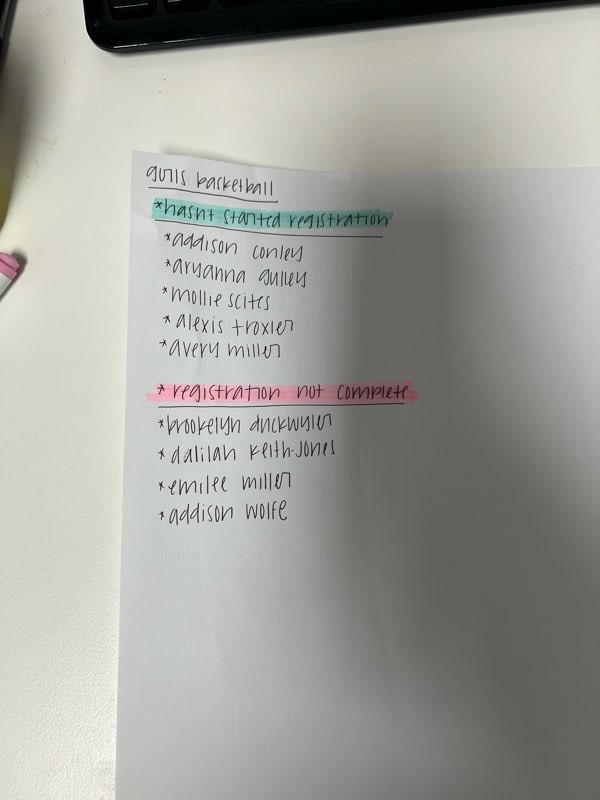 girls basketball
*hasnt started registration
*addison conley
*aryanna gulley
*mollie scites
*alexis troxler
*avery miller
*registration not complete
*brookelyn duckwyler
*dalilah keith-jones
*emilee miller
*addison wolfe